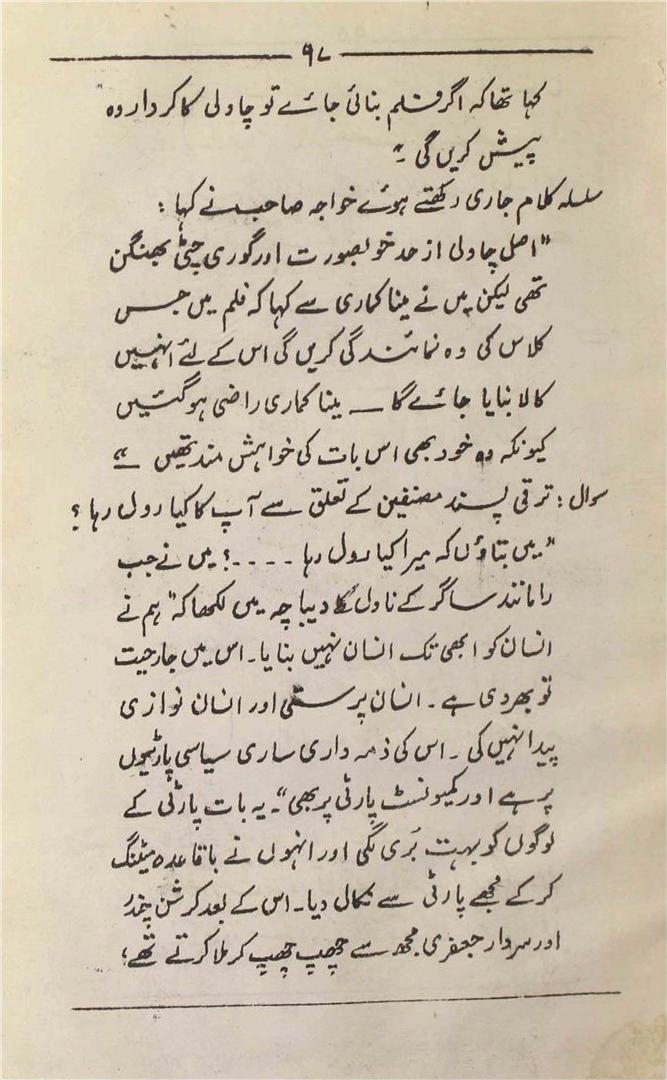 ۹۷
کہا تھا کہ اگر فلم بنائی جائے تو چاولی کا کردار وہ
پیش کریں گی ۔"
سلسلہ کلام جاری رکھتے ہوئے خواجہ صاحب نے کہا :
"اصل چاولی از حد خوبصورت اور گوری چٹی بھنگن
تھی لیکن میں نے مینا کماری سے کہا کہ فلم میں جس
کلاس کی وہ نمائندگی کریں گی اس کے لئے انہیں
کالا بنایا جائے گا ـــ مینا کماری راضی ہو گئیں
کیونکہ وہ خود بھی اس بات کی خواہش مند تھیں ۔"
سوال : ترقی پسند مصنفین کے تعلق سے آپ کا کیا رول رہا ؟
"میں بتاؤں کہ میرا کیا رول رہا ۔۔۔۔؟ میں نے جب
رامانند ساگر کے ناول کا دیباچہ میں لکھا کہ "ہم نے
انسان کو ابھی تک انسان نہیں بنایا۔ اس میں جارحیت
تو بھر دی ہے ۔ انسان پرستی اور انسان نوازی
پیدا نہیں کی ۔ اس کی ذمہ داری ساری سیاسی پارٹیوں
پر ہے اور کمیونسٹ پارٹی پر بھی"۔ یہ بات پارٹی کے
لوگوں کو بہت بُری لگی اور انہوں نے باقاعدہ میٹنگ
کر کے مجھے پارٹی سے نکال دیا۔ اس کے بعد کرشن چندر
اور سردار جعفری مجھ سے چھپ چھپ کر ملا کرتے تھے،